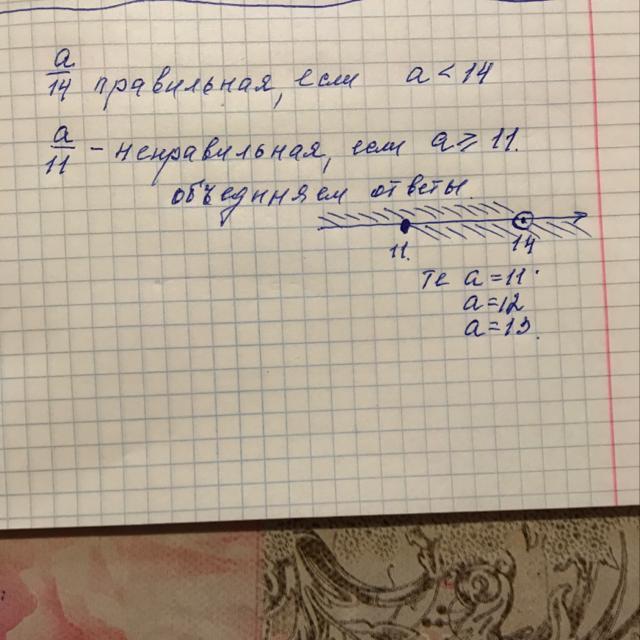 a/14 правильная, если a < 14
a/11 - неправильная, если a ⩾ 11.
объединяем ответы
11. 14
те a = 11
a = 12
a = 13.